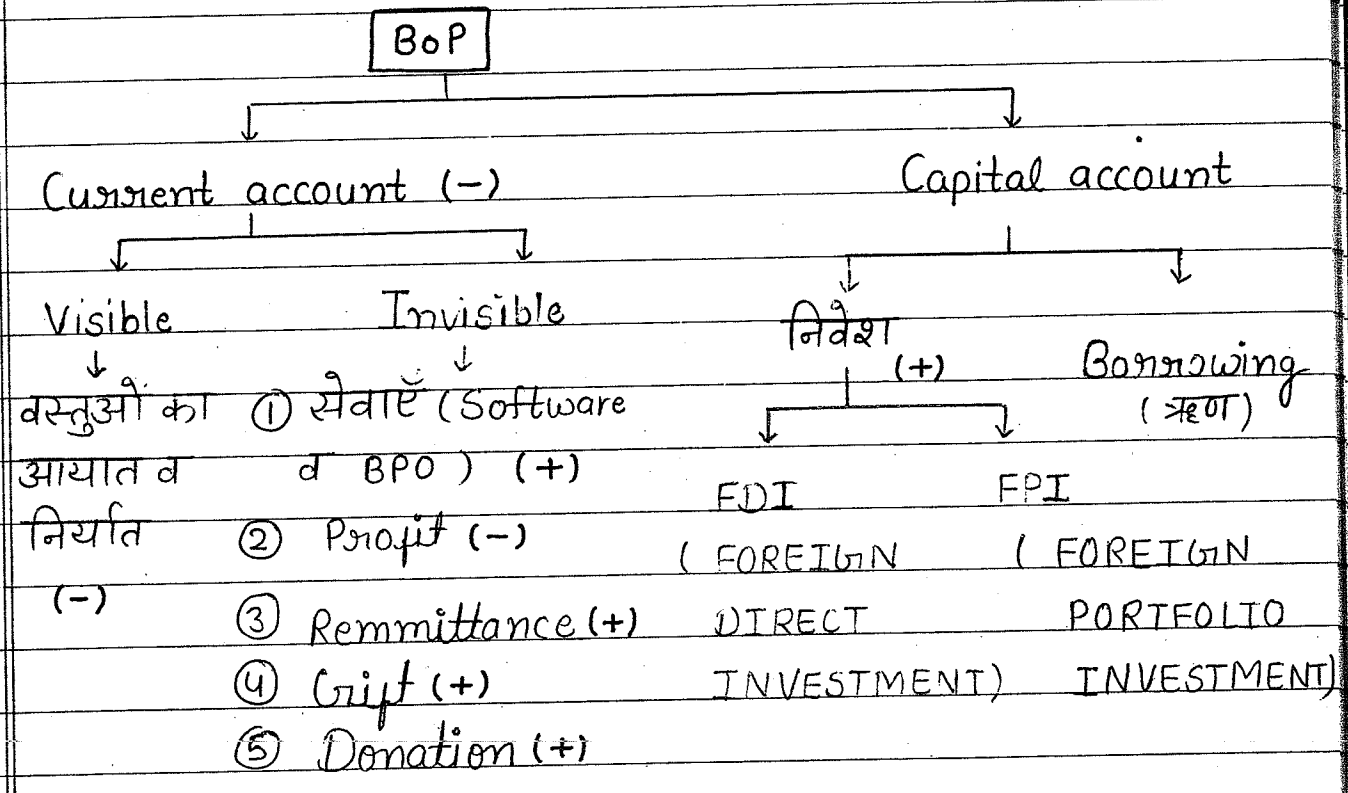 BOP
Current account (-)
Capital account
Visible
Invisible
वस्तुओं का
आयात व
निर्यात
(-)
① सेवाएँ (Software
व BPO) (+)
② Profit (-)
③ Remmittance (+)
④ Gift (+)
⑤ Donation (+)
निवेश
(+)
FDI
(FOREIGN
DIRECT
INVESTMENT)
FPI
(FOREIGN
PORTFOLIO
INVESTMENT)
Borrowing
(ऋण)